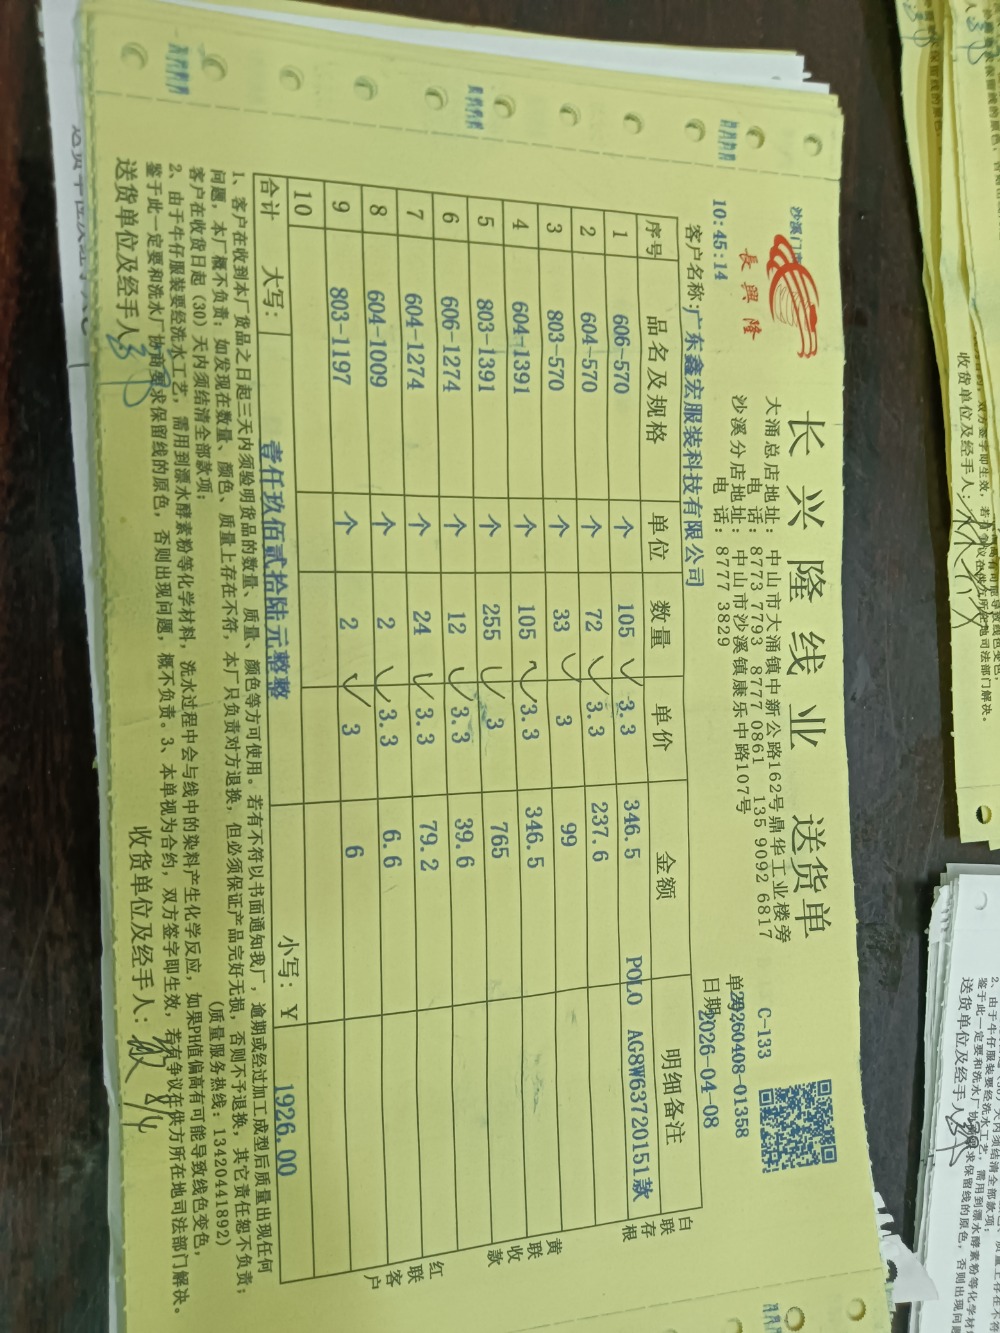 沙溪门市
長興隆
长兴隆线业 送货单
大涌总店地址： 中山市大涌镇中新公路162号鼎华工业楼旁
电 话： 8773 7793 8777 0861 135 9092 6817
沙溪分店地址： 中山市沙溪镇康乐中路107号
电 话： 8777 3829
C-133
单号:20260408-01358
日期:2026-04-08
10:45:14
客户名称:广东鑫宏服装科技有限公司
序号 品名及规格 单位 数量 单价 金额 明细备注
1 606-570 个 105 3.3 346.5 POLO AG8W63720151款
2 604-570 个 72 3.3 237.6
3 803-570 个 33 3 99
4 604-1391 个 105 3.3 346.5
5 803-1391 个 255 3 765
6 606-1274 个 12 3.3 39.6
7 604-1274 个 24 3.3 79.2
8 604-1009 个 2 3.3 6.6
9 803-1197 个 2 3 6
10
合计 大写： 壹仟玖佰贰拾陆元整整 小写：Y 1926.00
白联存根
黄联收款
红联客户
1、客户在收到本厂货品之日起三天内须验明货品的数量、质量、颜色等方可使用。若有不符以书面通知我厂，逾期或经过加工成型后质量出现任何
问题，本厂概不负责；如发现在数量、颜色、质量上存在不符，本厂只负责对方退换，但必须保证产品完好无损，否则不予退换，其它责任恕不负责；
客户在收货日起（30）天内须结清全部款项； （质量服务热线：13420441892）
2、由于牛仔服装要经洗水工艺，需用到漂水酵素粉等化学材料，洗水过程中会与线中的染料产生化学反应，如果PH值偏高有可能导致线色变色，
鉴于此一定要和洗水厂协商要求保留线的原色，否则出现问题，概不负责。3、本单视为合约，双方签字即生效，若有争议在供方所在地司法部门解决。
送货单位及经手人： 收货单位及经手人：
收货单位及经手人：
送货单位及经手人